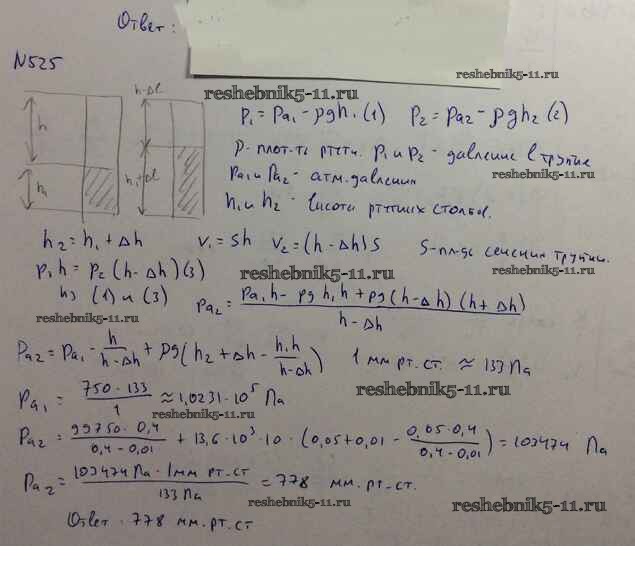 Ответ:
N525
reshebnik5-11.ru
reshebnik5-11.ru
h-Δl
h
h₁
h₁+Δl
P₁ = Pa₁ - ρgh₁ (1) P₂ = Pa₂ - ρgh₂ (2)
ρ - плот-ть ртути. P₁ и P₂ - давление в трубке
Pa₁ и Pa₂ - атм. давления
h₁ и h₂ - высоты ртутных столбов.
reshebnik5-11.ru
h₂ = h₁ + Δh V₁ = Sh V₂ = (h-Δh)S S-пл-дь сечения трубки.
reshebnik5-11.ru
P₁h = P₂(h-Δh) (3)
reshebnik5-11.ru
из (1) и (3) Pa₂ = (Pa₁h - ρgh₁h + ρg(h-Δh)(h+Δh)) / (h-Δh)
reshebnik5-11.ru
Pa₂ = Pa₁ - h/(h-Δh) + ρg(h₂+Δh - h·h/(h-Δh)) 1 мм рт. ст. ≈ 133 Па
reshebnik5-11.ru
Pa₁ = 750·133/1 ≈ 1,0231·10⁵ Па
Pa₂ = 99750·0,4/(0,4-0,01) + 13,6·10³·10·(0,05+0,01 - 0,05·0,4/(0,4-0,01)) = 103474 Па
Pa₂ = 103474 Па·1мм рт-ст/133 Па = 778 мм. рт-ст.
reshebnik5-11.ru
reshebnik5-11.ru
Ответ. 778 мм. рт. ст